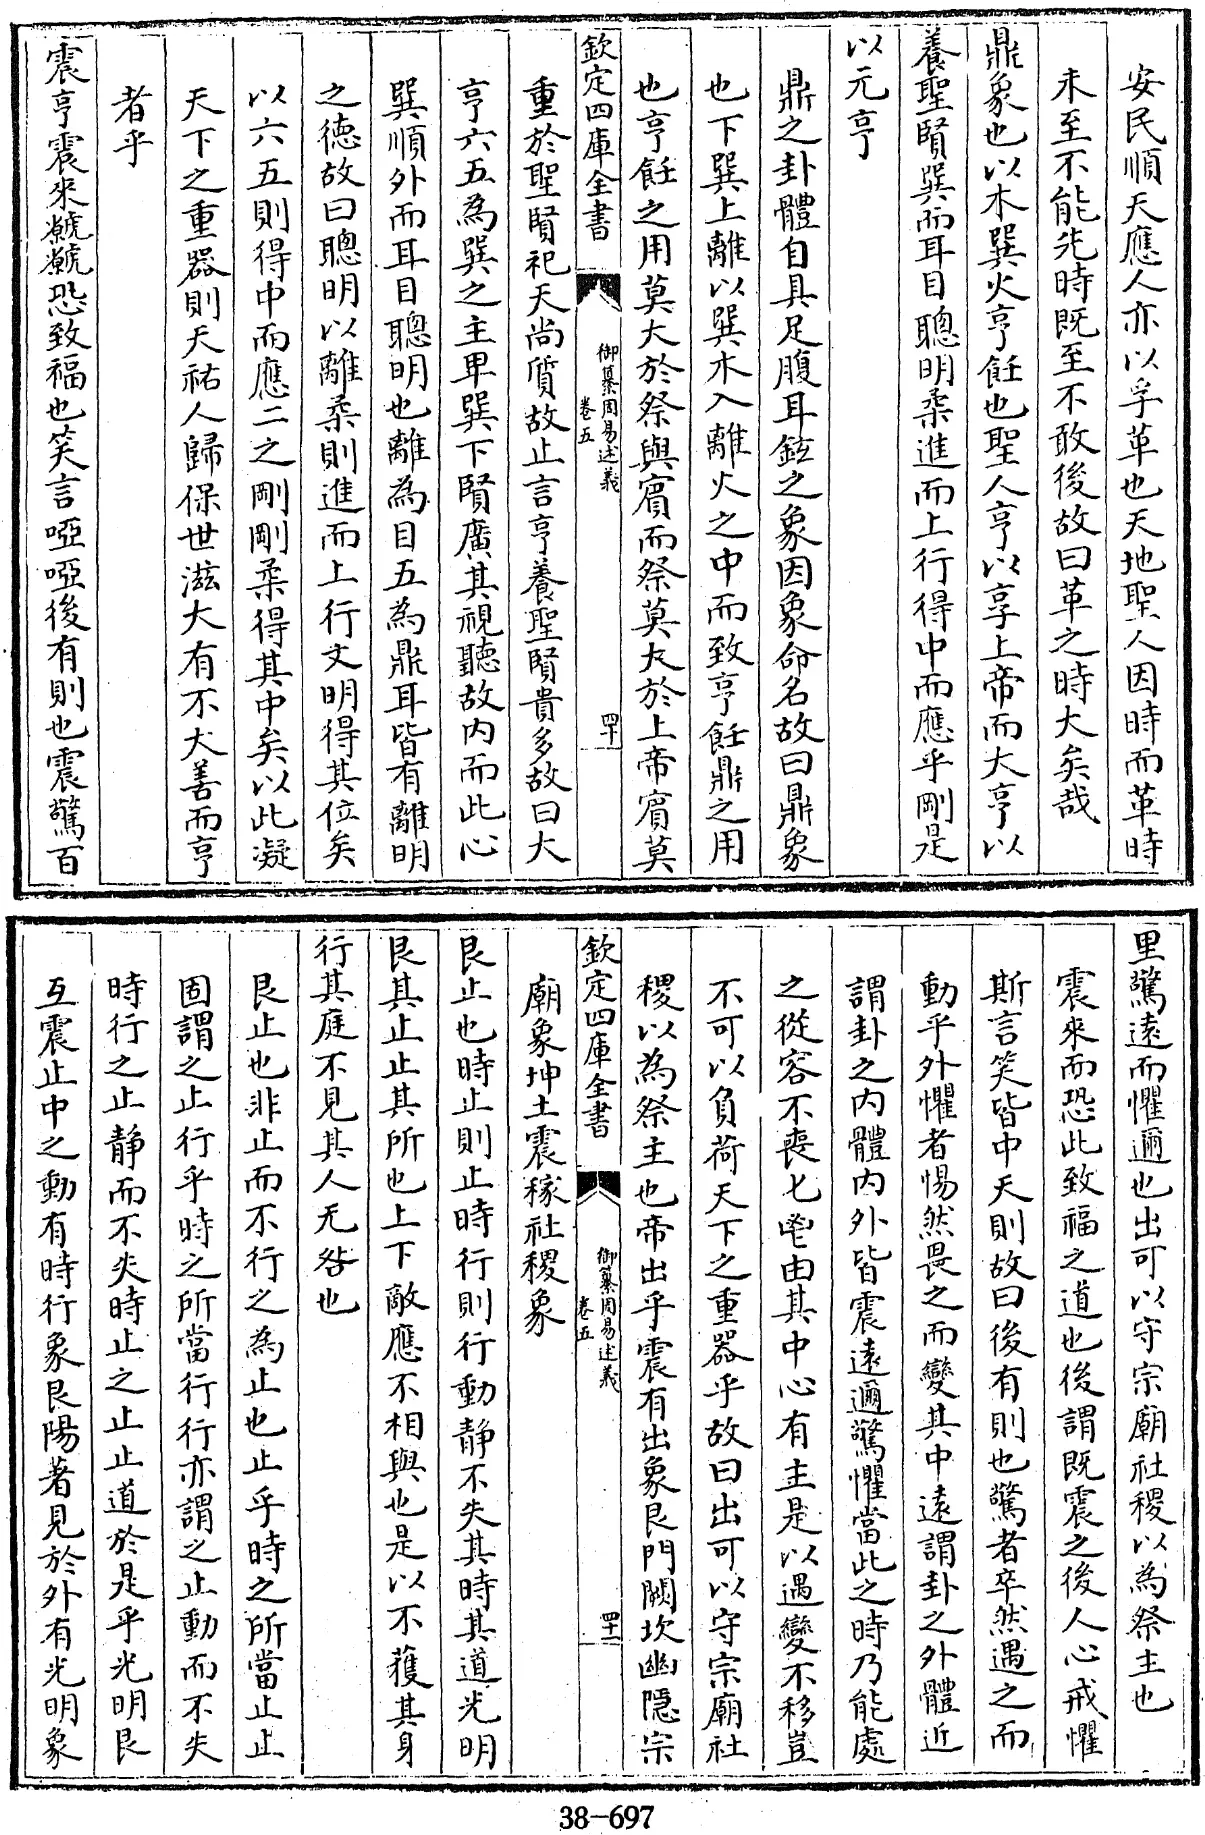 安民順天應人亦以孚革也天地聖人因時而革時
未至不能先時既至不敢後故曰革之時大矣哉
鼎象也以木巽火亨飪也聖人亨以享上帝而大亨以
養聖賢巽而耳目聰明柔進而上行得中而應乎剛是
以元亨
鼎之卦體自具足腹耳鉉之象因象命名故曰鼎象
也下巽上離以巽木入離火之中而致亨飪鼎之用
也亨飪之用莫大於祭與賓而祭莫大於上帝賓莫
欽定四庫全書
御纂周易述義
卷五
四十
重於聖賢祀天尚質故止言亨養聖賢貴多故曰大
亨六五為巽之主卑巽下賢廣其視聽故内而此心
巽順外而耳目聰明也離為目五為鼎耳皆有離明
之德故曰聰明以離柔則進而上行文明得其位矣
以六五則得中而應二之剛剛柔得其中矣以此凝
天下之重器則天祐人歸保世滋大有不大善而亨
者乎
震亨震來虩虩恐致福也笑言啞啞後有則也震驚百
里驚遠而懼邇也出可以守宗廟社稷以為祭主也
震來而恐此致福之道也後謂既震之後人心戒懼
斯言笑皆中天則故曰後有則也驚者卒然遇之而
動乎外懼者惕然畏之而變其中遠謂卦之外體近
謂卦之内體内外皆震遠邇驚懼當此之時乃能處
之從容不喪匕鬯由其中心有主是以遇變不移豈
不可以負荷天下之重器乎故曰出可以守宗廟社
稷以為祭主也帝出乎震有出象艮門闕坎幽隱宗
欽定四庫全書
御纂周易述義
卷五
四十一
廟象坤土震稼社稷象
艮止也時止則止時行則行動靜不失其時其道光明
艮其止止其所也上下敵應不相與也是以不獲其身
行其庭不見其人无咎也
艮止也非止而不行之為止也止乎時之所當止止
固謂之止行乎時之所當行行亦謂之止動而不失
時行之止靜而不失時止之止止道於是乎光明艮
互震止中之動有時行象艮陽著見於外有光明象
38-697